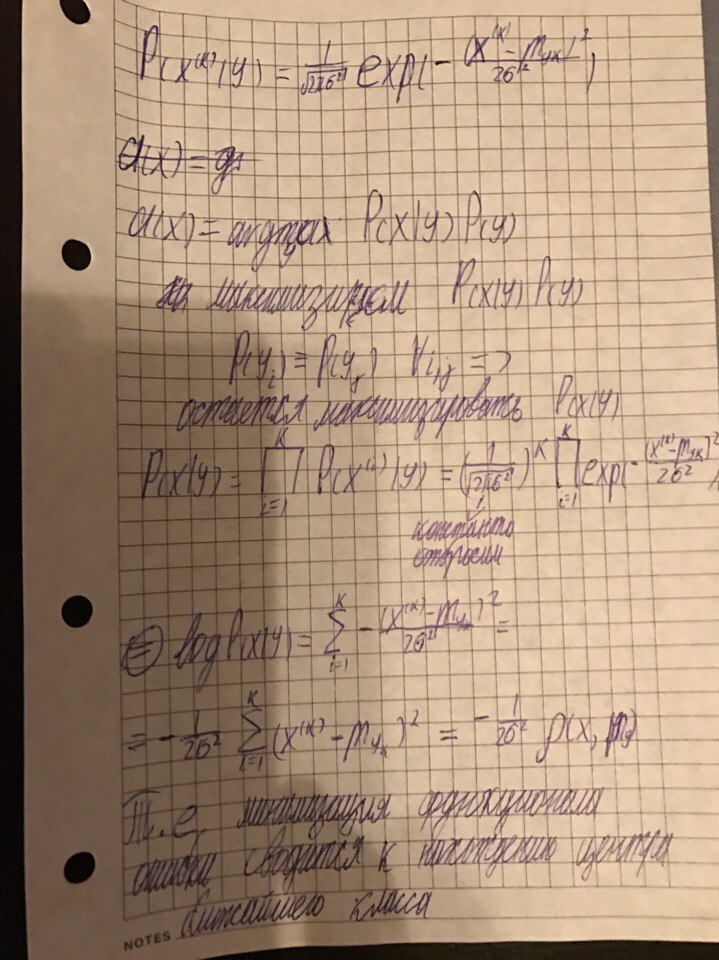 P(x⁽ᵏ⁾|y) = 1/√(2πσ²) exp(-(x⁽ᵏ⁾-μ_yk)²/2σ²)
d(x) = argmax_y P(x|y) P(y)
максимизируем P(x|y) P(y)
P(y_i) = P(y_j) ∀i,j =>
остается максимизировать P(x|y)
P(x|y) = ∏_{i=1}^K P(x⁽ⁱ⁾|y) = (1/√(2πσ²))^K ∏_{i=1}^K exp(-(x⁽ᵏ⁾-μ_yk)²/2σ²)
константа
отбросим
⊜ log P(x|y) = ∑_{i=1}^K -(x⁽ᵏ⁾-μ_yk)²/2σ² =
= -1/2σ² ∑_{i=1}^K (x⁽ᵏ⁾-μ_yk)² = -1/2σ² ρ(x, μ_y)
Т.е. минимизация функционала
ошибки сводится к нахождению центра
ближайшего класса
NOTES